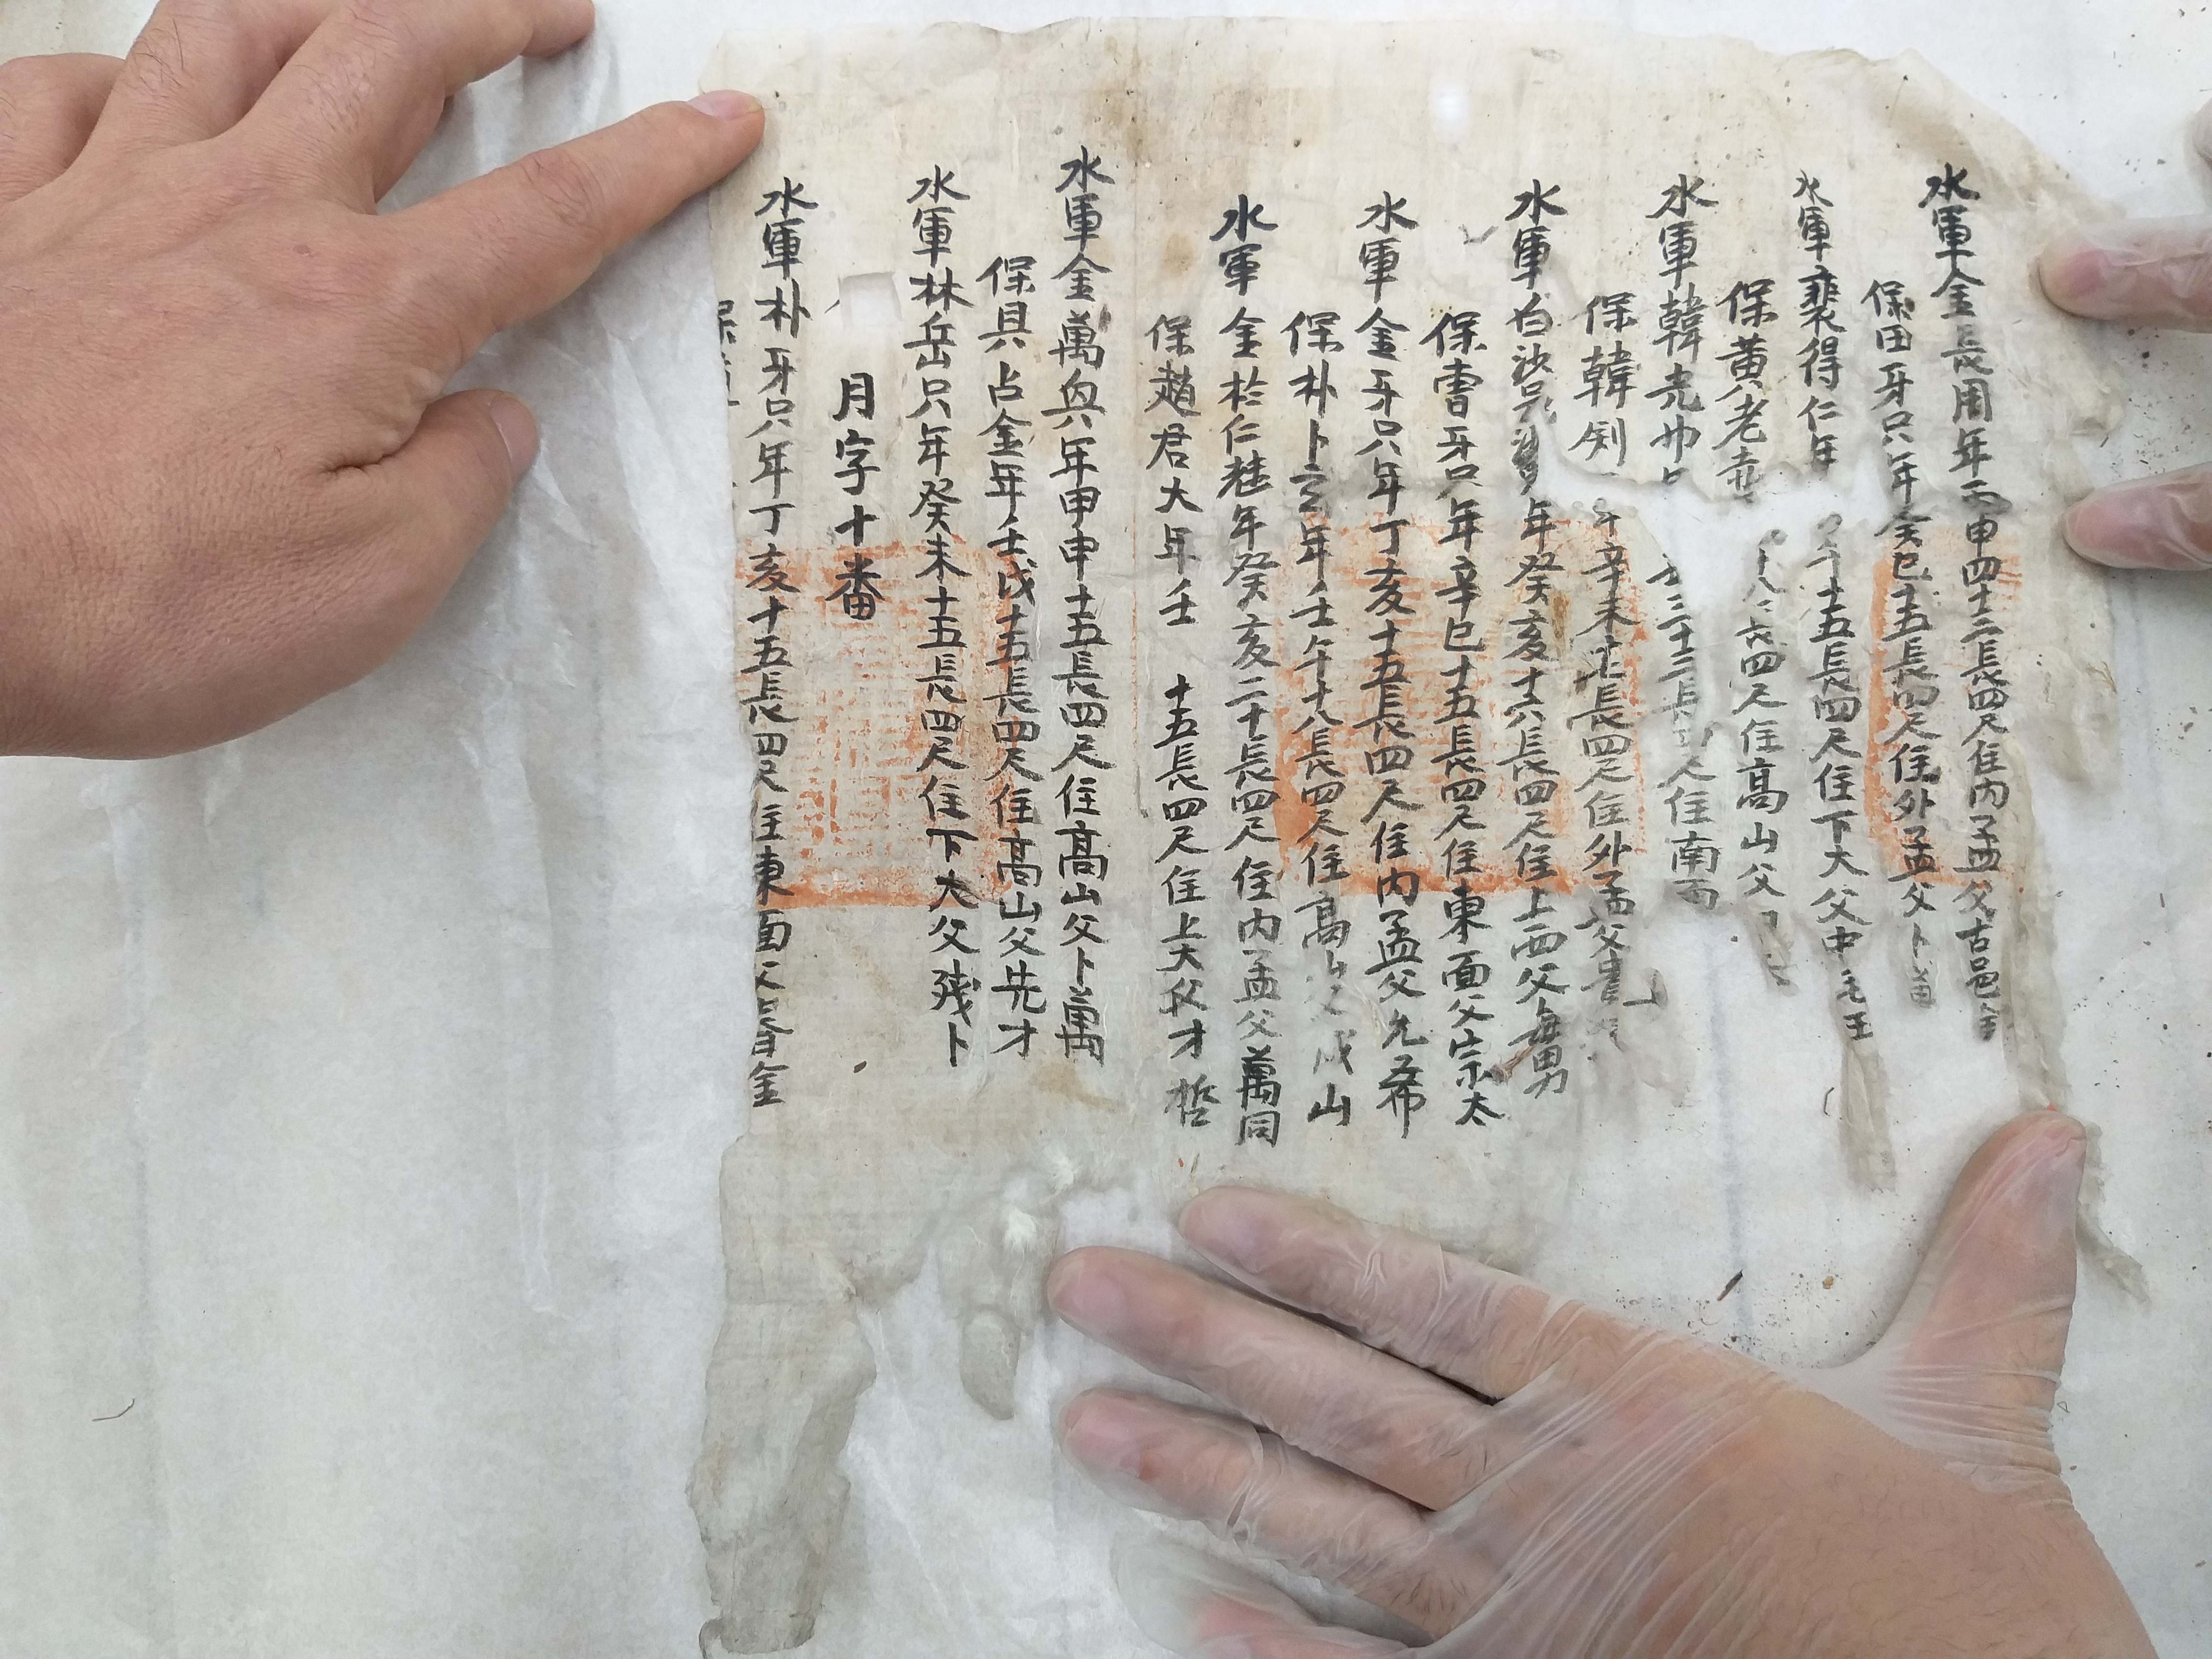 水軍金長周年丙申四十二長四尺住内孟父古邑金
保田牙只年癸巳十五長四尺住外孟父卜萬
水軍裴得仁年 十五長四尺住下大父中毛王
保黃老 十八 長四尺住高山父
水軍韓 三十二長四尺住南面
保韓 年辛未 長四尺住外孟父
水軍白沙 年癸亥十六長四尺住上西父每男
保曺牙只年辛巳十五長四尺住東面父宗太
水軍金牙只年丁亥十五長四尺住内孟父允希
保朴卜 年壬午十八長四尺住高山父戊山
水軍金於仁 年癸亥二十長四尺住内孟父萬同
保趙君大年壬 十五長四尺住上大父才哲
水軍金萬興年甲申十五長四尺住高山父卜萬
保具占金年壬戌十五長四尺住高山父先才
水軍林岳只年癸未十五長四尺住下大父殘卜
月字十番
水軍朴牙只年丁亥十五長四尺住東面父春金
保